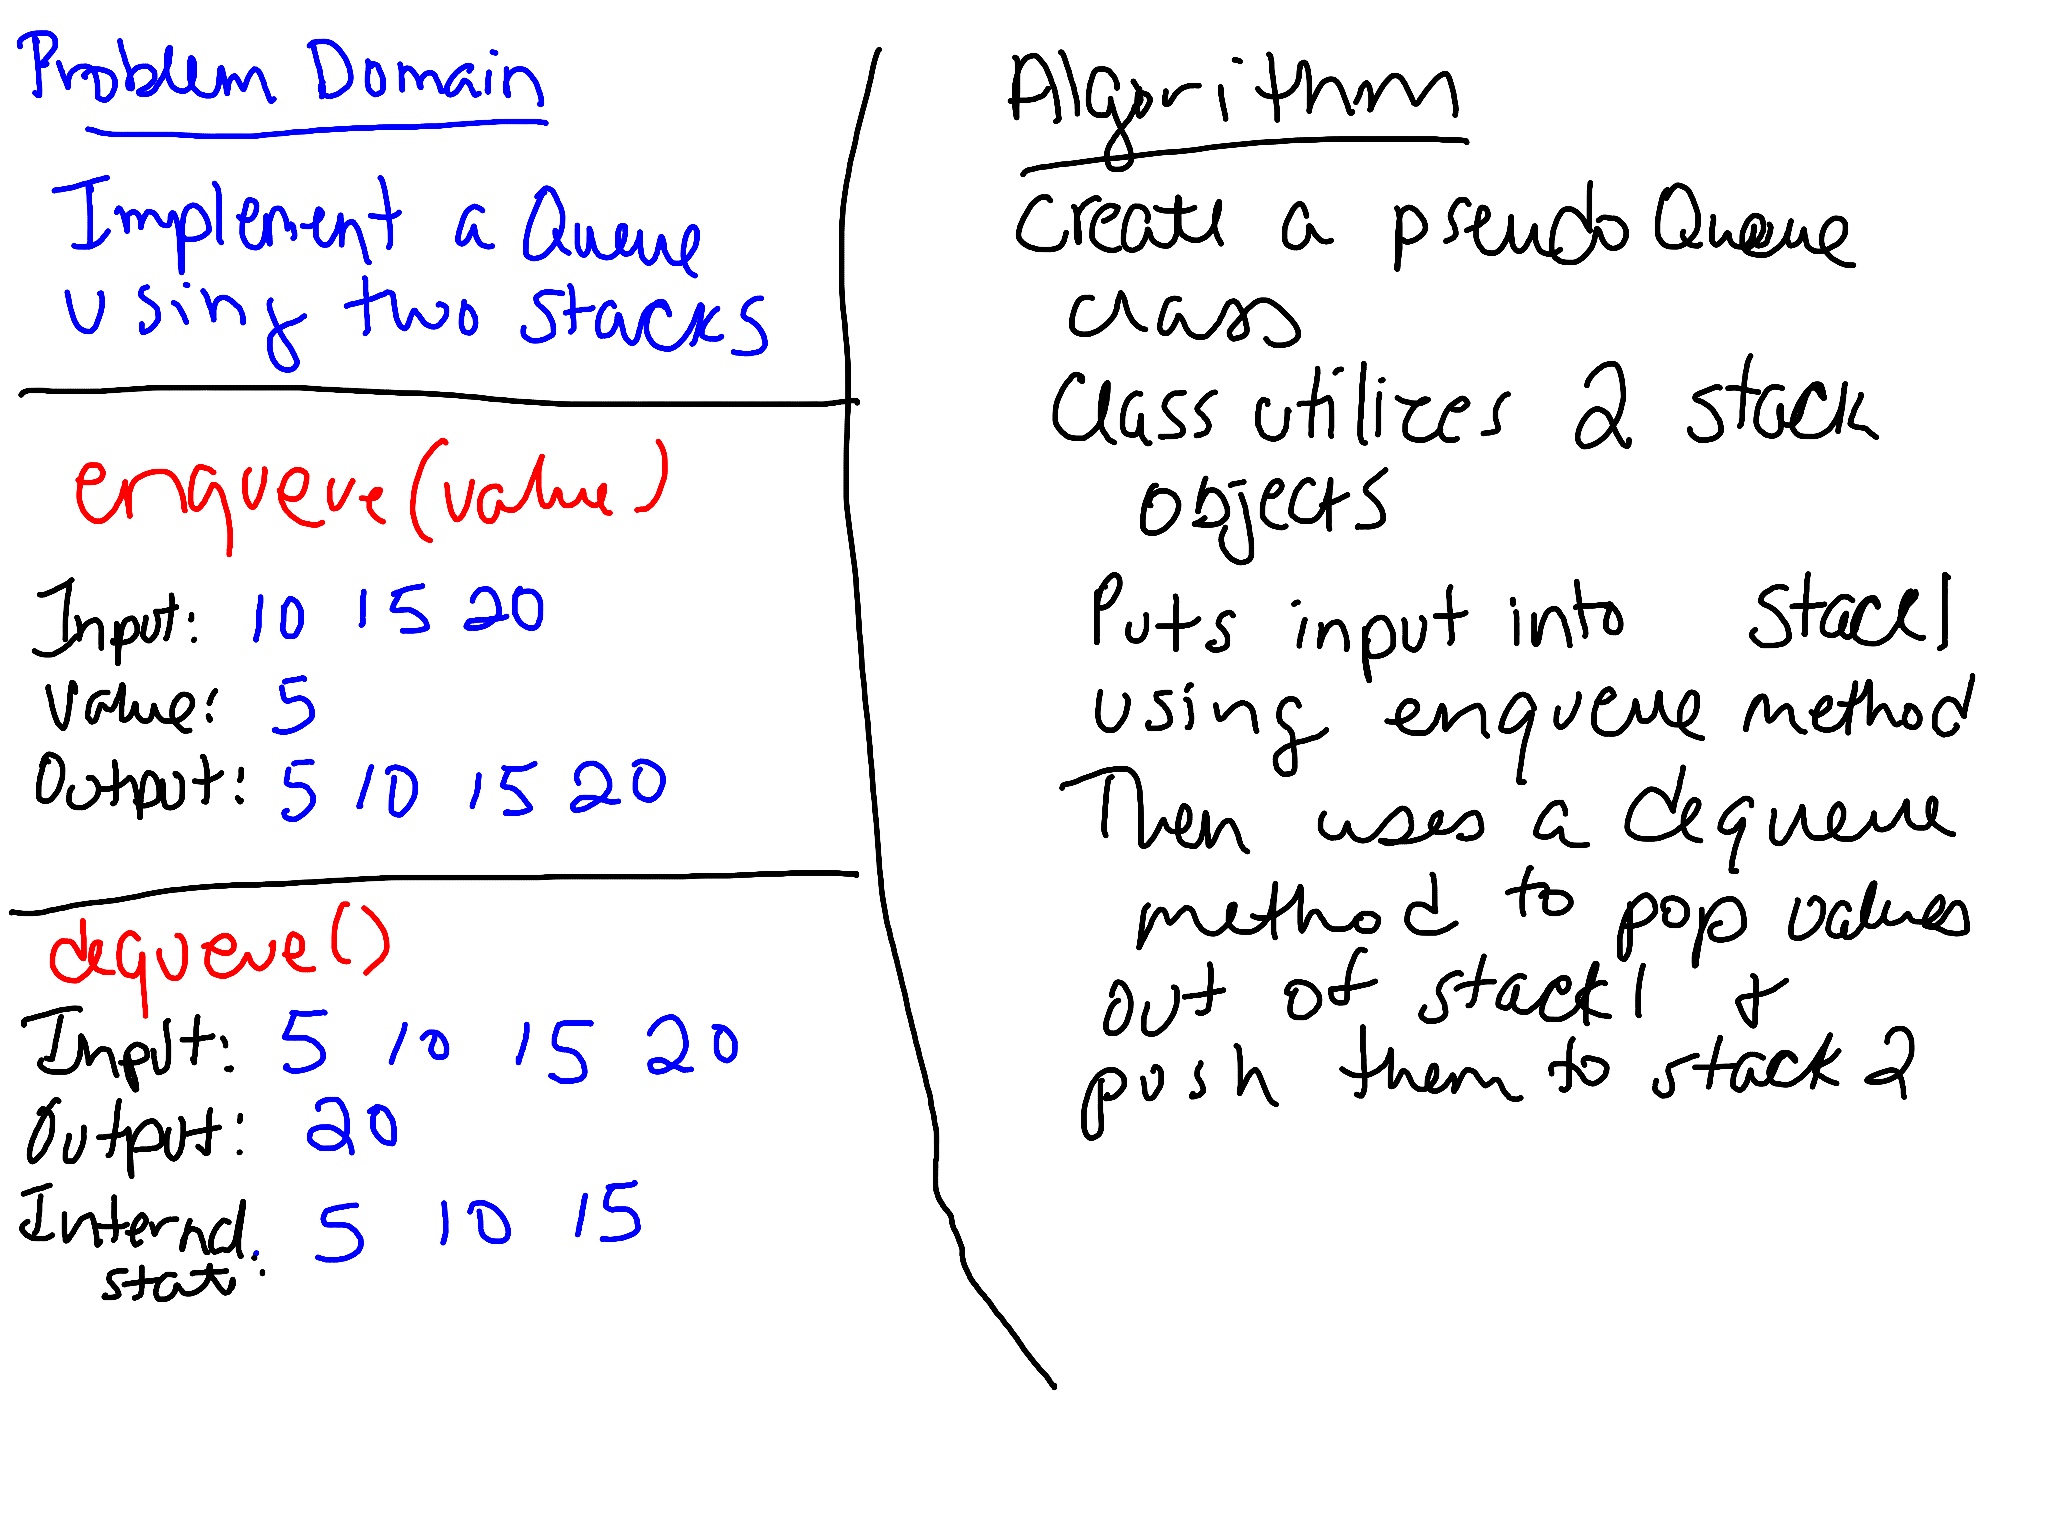 Problem Domain
Implement a Queue
using two stacks
enqueue(value)
Input: 10 15 20
Value: 5
Output: 5 10 15 20
dequeue()
Input: 5 10 15 20
Output: 20
Internal
state: 5 10 15
Algorithm
Create a pseudo Queue
class
Class utilizes 2 stack
objects
Puts input into stack1
using enqueue method
Then uses a dequeue
method to pop values
out of stack1 &
push them to stack 2